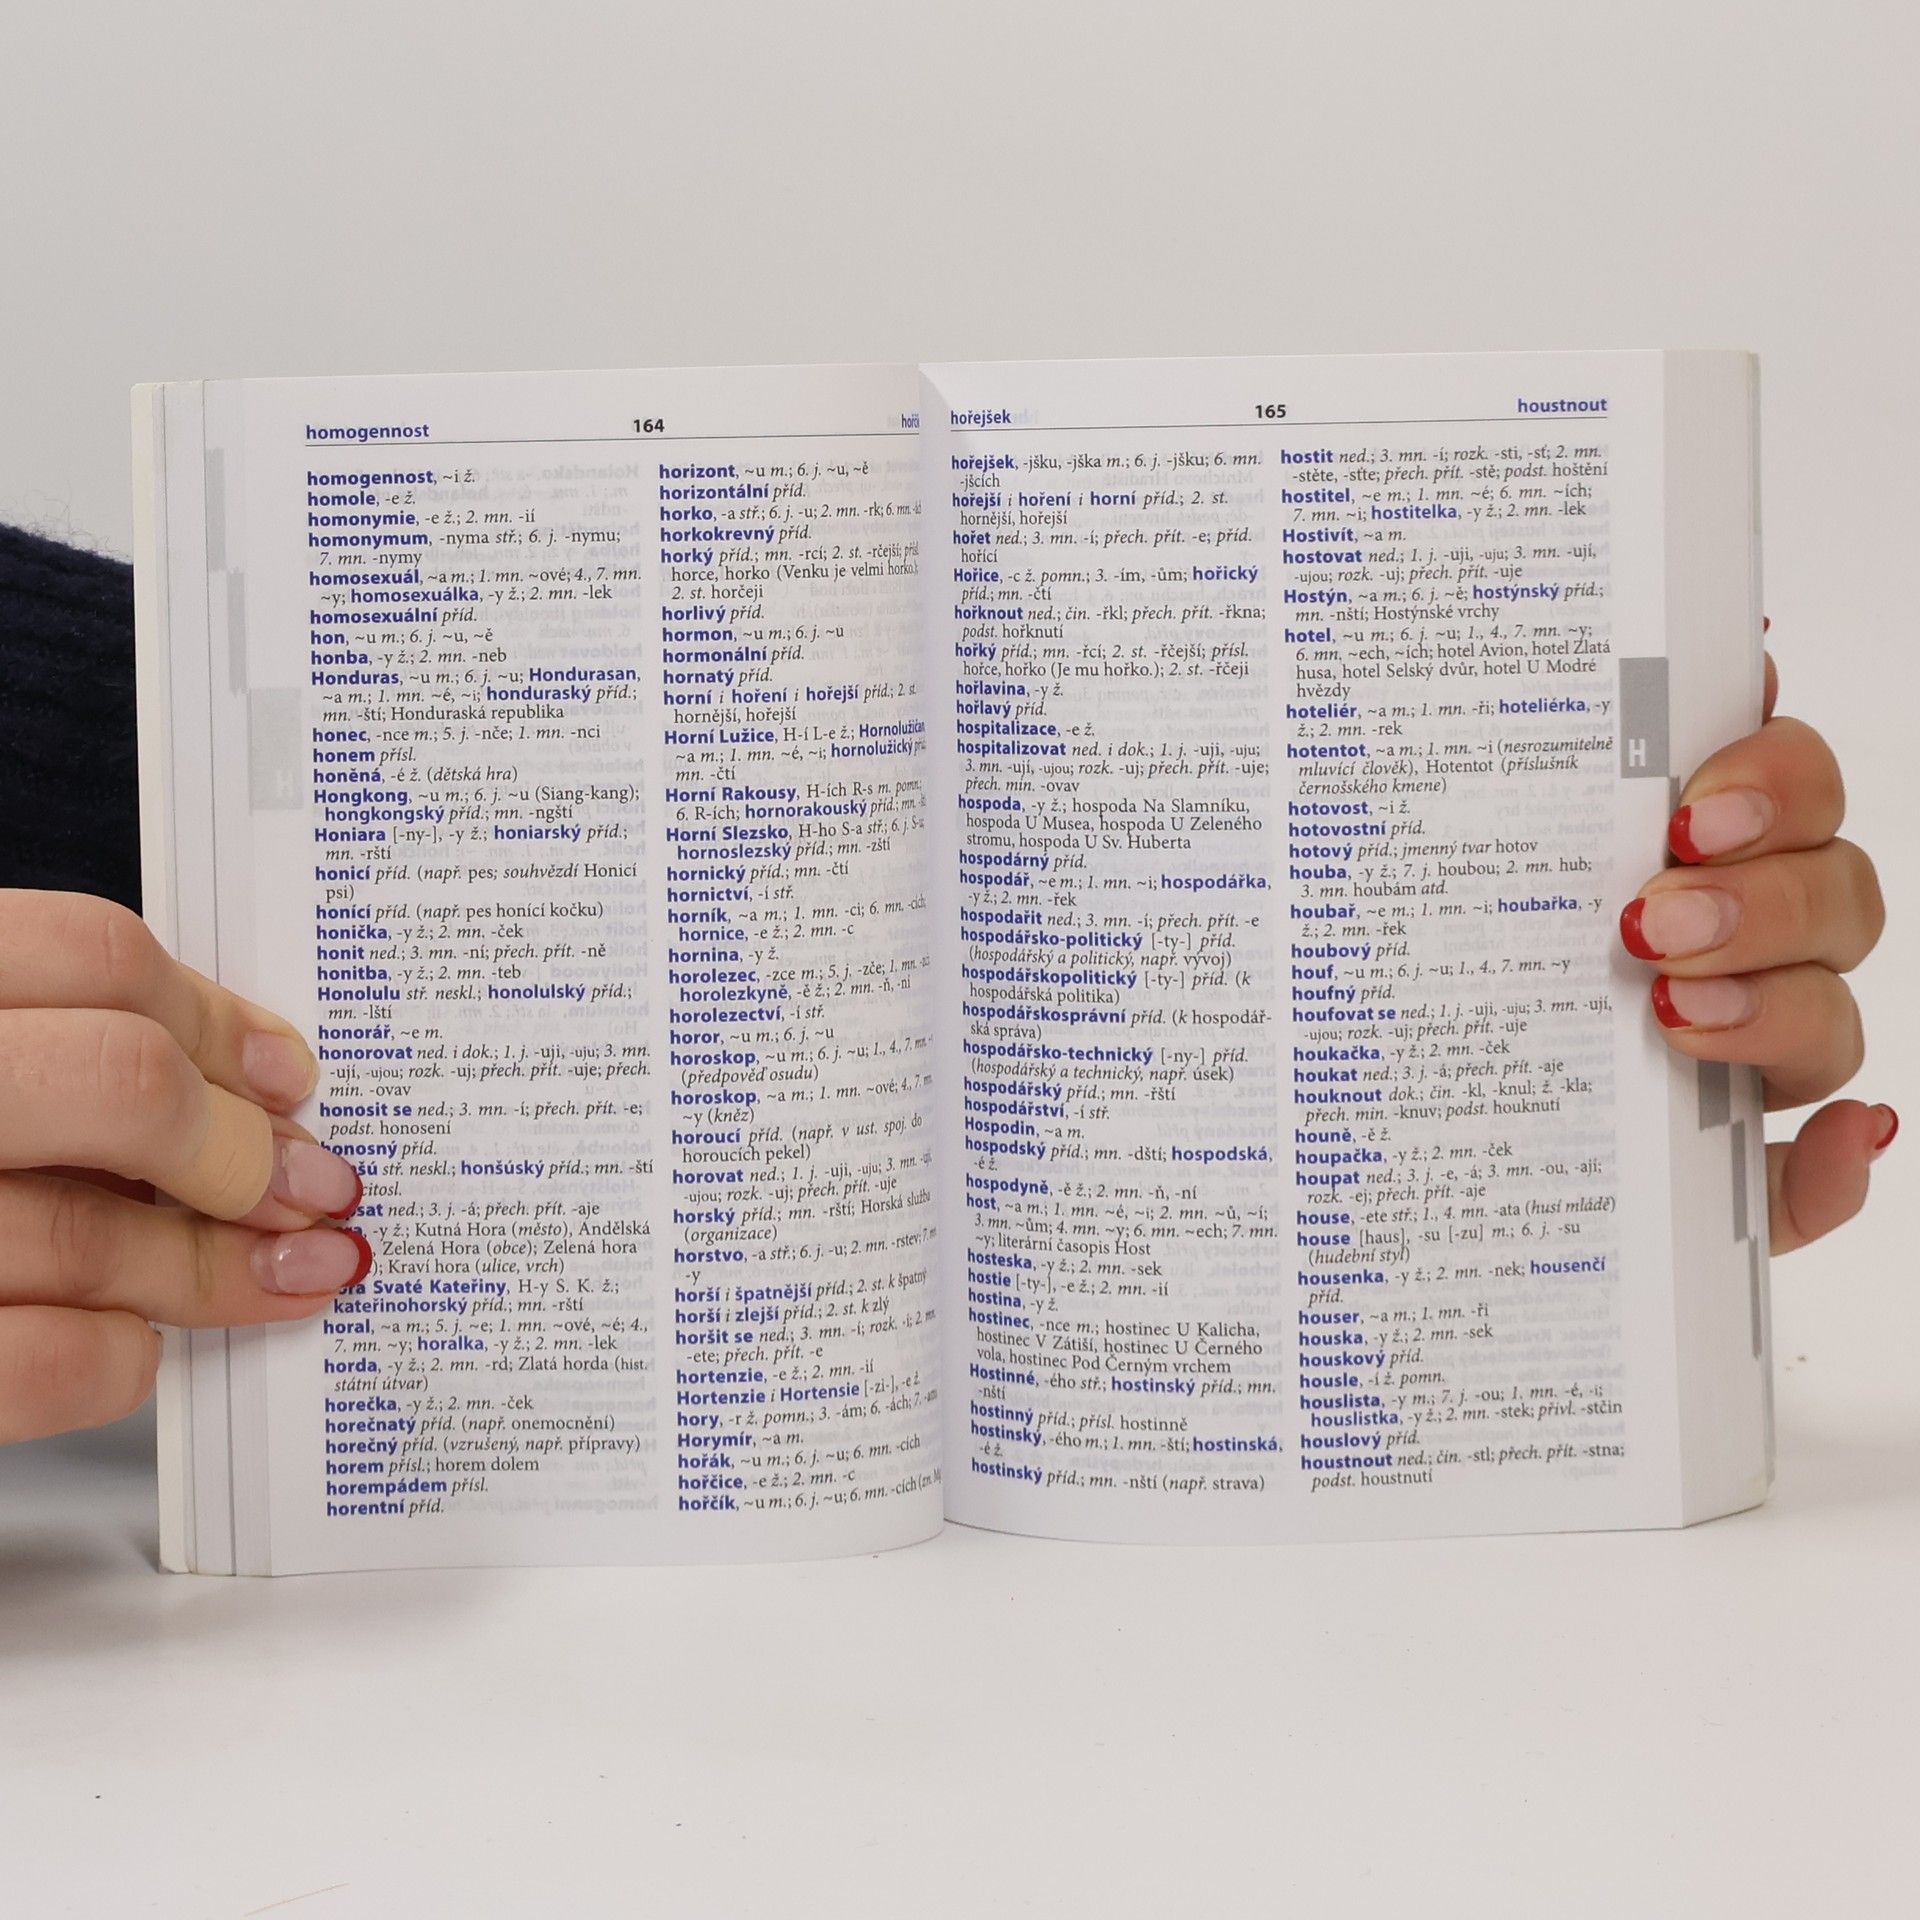 homogennost 164
homogennost, ~i ž.
homole, -e ž.
homonymie, -e ž.; 2. mn. -ií
homonymum, -nyma stř.; 6. j. -nymu;
7. mn. -nymy
homosexuál, ~a m.; 1. mn. ~ové; 4., 7. mn.
~y; homosexuálka, -y ž.; 2. mn. -lek
homosexuální příd.
hon, ~u m.; 6. j. ~u, ~ě
honba, -y ž.; 2. mn. -neb
Honduras, ~u m.; 6. j. ~u; Hondurasan,
~a m.; 1. mn. ~é, ~i; honduraský příd.;
mn. -ští; Honduraská republika
honec, -nce m.; 5. j. -nče; 1. mn. -nci
honem přísl.
honěná, -é ž. (dětská hra)
Hongkong, ~u m.; 6. j. ~u (Siang-kang);
hongkongský příd.; mn. -ngští
Honiara [-ny-], -y ž.; honiarský příd.;
mn. -rští
honicí příd. (např. pes; souhvězdí Honicí
psi)
honící příd. (např. pes honící kočku)
honička, -y ž.; 2. mn. -ček
honit ned.; 3. mn. -ní; přech. přít. -ně
honitba, -y ž.; 2. mn. -teb
Honolulu stř. neskl.; honolulský příd.;
mn. -lští
honorář, ~e m.
honorovat ned. i dok.; 1. j. -uji, -uju; 3. mn.
-ují, -ujou; rozk. -uj; přech. přít. -uje; přech.
min. -ovav
honosit se ned.; 3. mn. -í; přech. přít. -e;
podst. honosení
honosný příd.
stř. neskl.; honšúský příd.; mn. -ští
citosl.
ned.; 3. j. -á; přech. přít. -aje
-y ž.; Kutná Hora (město), Andělská
Zelená Hora (obce); Zelená hora
Kraví hora (ulice, vrch)
Svaté Kateřiny, H-y S. K. ž.;
kateřinohorský příd.; mn. -rští
horal, ~a m.; 5. j. ~e; 1. mn. ~ové, ~é; 4.,
7. mn. ~y; horalka, -y ž.; 2. mn. -lek
horda, -y ž.; 2. mn. -rd; Zlatá horda (hist.
státní útvar)
horečka, -y ž.; 2. mn. -ček
horečnatý příd. (např. onemocnění)
horečný příd. (vzrušený, např. přípravy)
horem přísl.; horem dolem
horempádem přísl.
horentní příd.
horizont, ~u m.; 6. j. ~u, ~ě
horizontální příd.
horko, -a stř.; 6. j. -u; 2. mn. -rk; 6. mn.
horkokrevný příd.
horký příd.; mn. -rcí; 2. st. -rčejší;
horce, horko (Venku je velmi horko.);
2. st. horčeji
horlivý příd.
hormon, ~u m.; 6. j. ~u
hormonální příd.
hornatý příd.
horní i hoření i hořejší příd.; 2. st.
hornější, hořejší
Horní Lužice, H-í L-e ž.; Hornolužičan,
~a m.; 1. mn. ~é, ~i; hornolužický
mn. -čtí
Horní Rakousy, H-ích R-s m. pomn.;
6. R-ích; hornorakouský příd.; mn.
Horní Slezsko, H-ho S-a stř.; 6. j. S-u;
hornoslezský příd.; mn. -zští
hornický příd.; mn. -čtí
hornictví, -í stř.
horník, ~a m.; 1. mn. -ci; 6. mn. -cích;
hornice, -e ž.; 2. mn. -c
hornina, -y ž.
horolezec, -zce m.; 5. j. -zče; 1. mn. -zci
horolezkyně, -ě ž.; 2. mn. -ň, -ní
horolezectví, -í stř.
horor, ~u m.; 6. j. ~u
horoskop, ~u m.; 6. j. ~u; 1., 4., 7. mn.
(předpověď osudu)
horoskop, ~a m.; 1. mn. ~ové; 4., 7. mn.
~y (kněz)
horoucí příd. (např. v ust. spoj. do
horoucích pekel)
horovat ned.; 1. j. -uji, -uju; 3. mn. -ují,
-ujou; rozk. -uj; přech. přít. -uje
horský příd.; mn. -rští; Horská služba
(organizace)
horstvo, -a stř.; 6. j. -u; 2. mn. -rstev; 7. mn.
-y
horší i špatnější příd.; 2. st. k špatný
horší i zlejší příd.; 2. st. k zlý
horšit se ned.; 3. mn. -í; rozk. -i; 2. mn.
-ete; přech. přít. -e
hortenzie, -e ž.; 2. mn. -ií
Hortenzie i Hortensie [-zi-], -e ž.
hory, -r ž. pomn.; 3. -ám; 6. -ách; 7. -ami
Horymír, ~a m.
hořák, ~u m.; 6. j. ~u; 6. mn. -cích
hořčice, -e ž.; 2. mn. -c
hořčík, ~u m.; 6. j. ~u; 6. mn. -cích (zn. Mg)
hořejšek 165 houstnout
hořejšek, -jšku, -jška m.; 6. j. -jšku; 6. mn.
-jšcích
hořejší i hoření i horní příd.; 2. st.
hornější, hořejší
hořet ned.; 3. mn. -í; přech. přít. -e; příd.
hořící
Hořice, -c ž. pomn.; 3. -ím, -ům; hořický
příd.; mn. -čtí
hořknout ned.; čin. -řkl; přech. přít. -řkna;
podst. hořknutí
hořký příd.; mn. -řcí; 2. st. -řčejší; přísl.
hořce, hořko (Je mu hořko.); 2. st. -řčeji
hořlavina, -y ž.
hořlavý příd.
hospitalizace, -e ž.
hospitalizovat ned. i dok.; 1. j. -uji, -uju;
3. mn. -ují, -ujou; rozk. -uj; přech. přít. -uje;
přech. min. -ovav
hospoda, -y ž.; hospoda Na Slamníku,
hospoda U Musea, hospoda U Zeleného
stromu, hospoda U Sv. Huberta
hospodárný příd.
hospodář, ~e m.; 1. mn. ~i; hospodářka,
-y ž.; 2. mn. -řek
hospodařit ned.; 3. mn. -í; přech. přít. -e
hospodářsko-politický [-ty-] příd.
(hospodářský a politický, např. vývoj)
hospodářskopolitický [-ty-] příd. (k
hospodářská politika)
hospodářskosprávní příd. (k hospodář-
ská správa)
hospodářsko-technický [-ny-] příd.
(hospodářský a technický, např. úsek)
hospodářský příd.; mn. -řští
hospodářství, -í stř.
Hospodin, ~a m.
hospodský příd.; mn. -dští; hospodská,
-é ž.
hospodyně, -ě ž.; 2. mn. -ň, -ní
host, ~a m.; 1. mn. ~é, ~i; 2. mn. ~ů, ~í;
3. mn. ~ům; 4. mn. ~y; 6. mn. ~ech; 7. mn.
~y; literární časopis Host
hosteska, -y ž.; 2. mn. -sek
hostie [-ty-], -e ž.; 2. mn. -ií
hostina, -y ž.
hostinec, -nce m.; hostinec U Kalicha,
hostinec V Zátiší, hostinec U Černého
vola, hostinec Pod Černým vrchem
Hostinné, -ého stř.; hostinský příd.; mn.
-nští
hostinný příd.; přísl. hostinně
hostinský, -ého m.; 1. mn. -ští; hostinská,
-é ž.
hostinský příd.; mn. -nští (např. strava)
hostit ned.; 3. mn. -í; rozk. -sti, -sť; 2. mn.
-stěte, -sťte; přech. přít. -stě; podst. hoštění
hostitel, ~e m.; 1. mn. ~é; 6. mn. ~ích;
7. mn. ~i; hostitelka, -y ž.; 2. mn. -lek
Hostivít, ~a m.
hostovat ned.; 1. j. -uji, -uju; 3. mn. -ují,
-ujou; rozk. -uj; přech. přít. -uje
Hostýn, ~a m.; 6. j. ~ě; hostýnský příd.;
mn. -nští; Hostýnské vrchy
hotel, ~u m.; 6. j. ~u; 1., 4., 7. mn. ~y;
6. mn. ~ech, ~ích; hotel Avion, hotel Zlatá
husa, hotel Selský dvůr, hotel U Modré
hvězdy
hoteliér, ~a m.; 1. mn. -ři; hoteliérka, -y
ž.; 2. mn. -rek
hotentot, ~a m.; 1. mn. ~i (nesrozumitelně
mluvící člověk), Hotentot (příslušník
černošského kmene)
hotovost, ~i ž.
hotovostní příd.
hotový příd.; jmenný tvar hotov
houba, -y ž.; 7. j. houbou; 2. mn. hub;
3. mn. houbám atd.
houbař, ~e m.; 1. mn. ~i; houbařka, -y
ž.; 2. mn. -řek
houbový příd.
houf, ~u m.; 6. j. ~u; 1., 4., 7. mn. ~y
houfný příd.
houfovat se ned.; 1. j. -uji, -uju; 3. mn. -ují,
-ujou; rozk. -uj; přech. přít. -uje
houkačka, -y ž.; 2. mn. -ček
houkat ned.; 3. j. -á; přech. přít. -aje
houknout dok.; čin. -kl, -knul; ž. -kla;
přech. min. -knuv; podst. houknutí
houně, -ě ž.
houpačka, -y ž.; 2. mn. -ček
houpat ned.; 3. j. -e, -á; 3. mn. -ou, -ají;
rozk. -ej; přech. přít. -aje
house, -ete stř.; 1., 4. mn. -ata (husí mládě)
house [haus], -su [-zu] m.; 6. j. -su
(hudební styl)
housenka, -y ž.; 2. mn. -nek; housenčí
příd.
houser, ~a m.; 1. mn. -ři
houska, -y ž.; 2. mn. -sek
houskový příd.
housle, -í ž. pomn.
houslista, -y m.; 7. j. -ou; 1. mn. -é, -i;
houslistka, -y ž.; 2. mn. -stek; přivl. -stčin
houslový příd.
houstnout ned.; čin. -stl; přech. přít. -stna;
podst. houstnutí
H